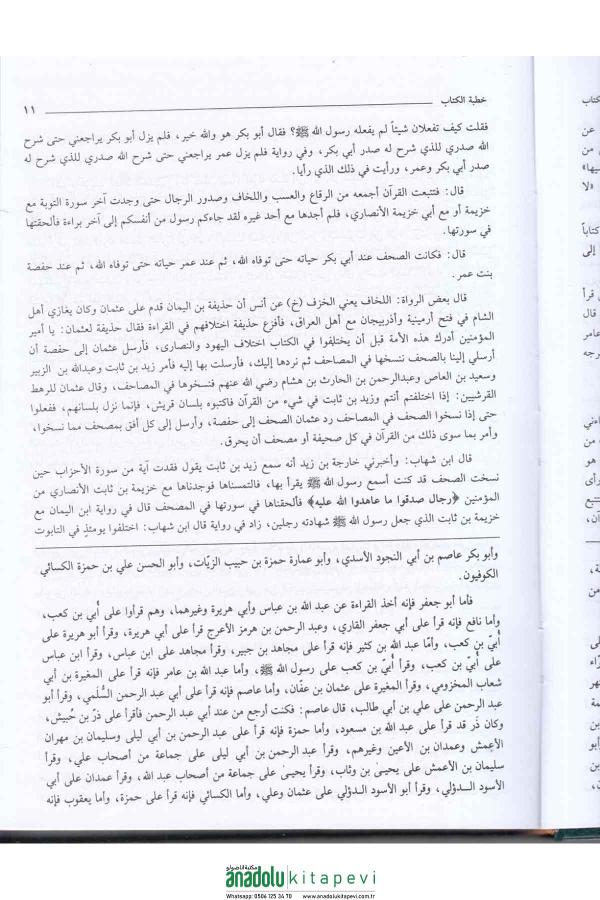 خطبة الكتاب
١١
فقلت كيف تفعلان شيئاً لم يفعله رسول الله ﷺ؟ فقال أبو بكر هو والله خير، فلم يزل أبو بكر يراجعني حتى شرح
الله صدري للذي شرح له صدر أبي بكر، وفي رواية فلم يزل عمر يراجعني حتى شرح الله صدري للذي شرح له
صدر أبي بكر وعمر، ورأيت في ذلك الذي رأيا.
قال: فتتبعت القرآن أجمعه من الرقاع والعسب واللخاف وصدور الرجال حتى وجدت آخر سورة التوبة مع
خزيمة أو مع أبي خزيمة الأنصاري، فلم أجدها مع أحد غيره لقد جاءكم رسول من أنفسكم إلى آخر براءة فألحقتها
في سورتها.
قال: فكانت الصحف عند أبي بكر حياته حتى توفاه الله، ثم عند عمر حياته حتى توفاه الله، ثم عند حفصة
بنت عمر.
قال بعض الرواة: اللخاف يعني الخزف (خ) عن أنس أن حذيفة بن اليمان قدم على عثمان وكان يغازي أهل
الشام في فتح أرمينية وأذربيجان مع أهل العراق، فأفزع حذيفة اختلافهم في القراءة فقال حذيفة لعثمان: يا أمير
المؤمنين أدرك هذه الأمة قبل أن يختلفوا في الكتاب اختلاف اليهود والنصارى، فأرسل عثمان إلى حفصة أن
أرسلي إلينا بالصحف ننسخها في المصاحف ثم نردها إليك، فأرسلت بها إليه فأمر زيد بن ثابت وعبدالله بن الزبير
وسعيد بن العاص وعبدالرحمن بن الحارث بن هشام رضي الله عنهم فنسخوها في المصاحف، وقال عثمان للرهط
القرشيين: إذا اختلفتم أنتم وزيد بن ثابت في شيء من القرآن فاكتبوه بلسان قريش، فإنما نزل بلسانهم، ففعلوا
حتى إذا نسخوا الصحف في المصاحف رد عثمان الصحف إلى حفصة، وأرسل إلى كل أفق بمصحف مما نسخوا،
وأمر بما سوى ذلك من القرآن في كل صحيفة أو مصحف أن يحرق.
قال ابن شهاب: وأخبرني خارجة بن زيد أنه سمع زيد بن ثابت يقول فقدت آية من سورة الأحزاب حين
نسخت الصحف قد كنت أسمع رسول الله ﷺ يقرأ بها، فالتمسناها فوجدناها مع خزيمة بن ثابت الأنصاري من
المؤمنين ﴿رجال صدقوا ما عاهدوا الله عليه﴾ فألحقناها في سورتها في المصحف قال في رواية ابن اليمان مع
خزيمة بن ثابت الذي جعل رسول الله ﷺ شهادته رجلين، زاد في رواية قال ابن شهاب: اختلفوا يومئذٍ في التابوت
وأبو بكر عاصم بن أبي النجود الأسدي، وأبو عمارة حمزة بن حبيب الزيّات، وأبو الحسن علي بن حمزة الكسائي
الكوفيون.
فأما أبو جعفر فإنه أخذ القراءة عن عبد الله بن عباس وأبي هريرة وغيرهما، وهم قرأوا على أبي بن كعب،
وأما نافع فإنه قرأ على أبي جعفر القاري، وعبد الرحمن بن هرمز الأعرج قرأ على أبي هريرة، وقرأ أبو هريرة على
أُبيّ بن كعب، وأمّا عبد الله بن كثير فإنه قرأ على مجاهد بن جبير، وقرأ مجاهد على ابن عباس، وقرأ ابن عباس
على أبيّ بن كعب، وقرأ أُبيّ بن كعب على رسول الله ﷺ، وأما عبد الله بن عامر فإنه قرأ على المغيرة بن أبي
شعاب المخزومي، وقرأ المغيرة على عثمان بن عفّان، وأما عاصم فإنه قرأ على أبي عبد الرحمن السُّلَمي، وقرأ أبو
عبد الرحمن على علي بن أبي طالب، قال عاصم: فكنت أرجع من عند أبي عبد الرحمن فأقرأ على ذرّ بن حُبيش،
وكان ذَر قد قرأ على عبد الله بن مسعود، وأما حمزة فإنه قرأ على عبد الرحمن بن أبي ليلى وسليمان بن مهران
الأعمش وعمدان بن الأعين وغيرهم، وقرأ عبد الرحمن بن أبي ليلى على جماعة من أصحاب علي، وقرأ
سليمان بن الأعمش على يحيىٰ بن وثاب، وقرأ يحيىٰ على جماعة من أصحاب عبد الله، وقرأ عمدان على أبي
الأسود الـدؤلي، وقرأ أبو الأسود الـدؤلي على عثمان وعلي، وأما الكسائي فإنه قرأ على حمزة، وأما يعقوب فإنه
مكتبة اناضولو
anadolu kitapevi
Whatsapp: 0506 125 34 70 www.anadolukitapevi.com.tr